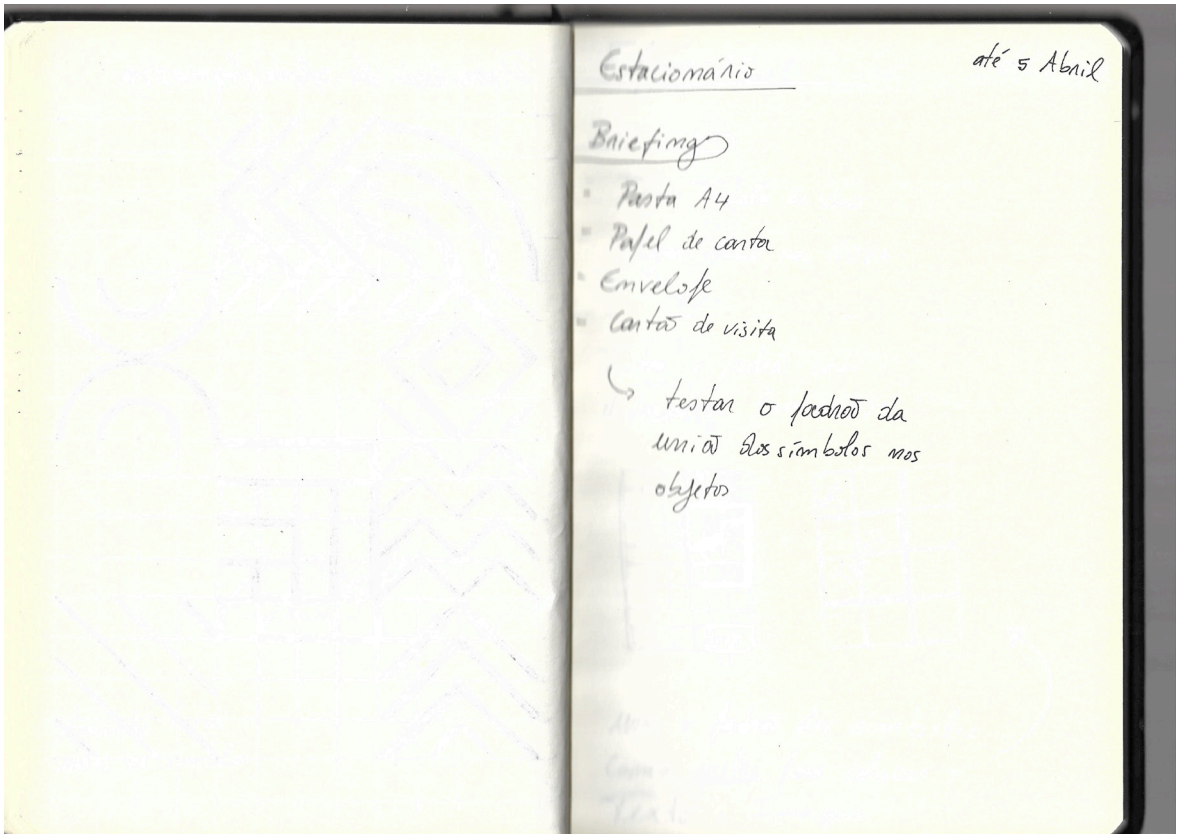 Estacionário
até 5 Abril
Briefing
Pasta A4
Papel de carta
Envelope
Cartão de visita
testar o padrão da
união dos símbolos nos
objetos